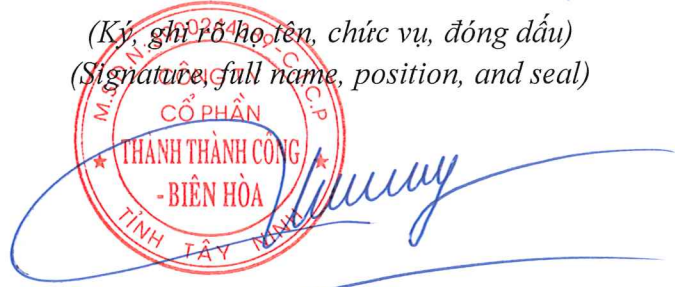 (Ký, ghi rõ họ tên, chức vụ, đóng dấu)
(Signature, full name, position, and seal)
CÔNG TY
CỔ PHẦN
THÀNH THÀNH CÔNG
- BIÊN HÒA
TỈNH TÂY NINH